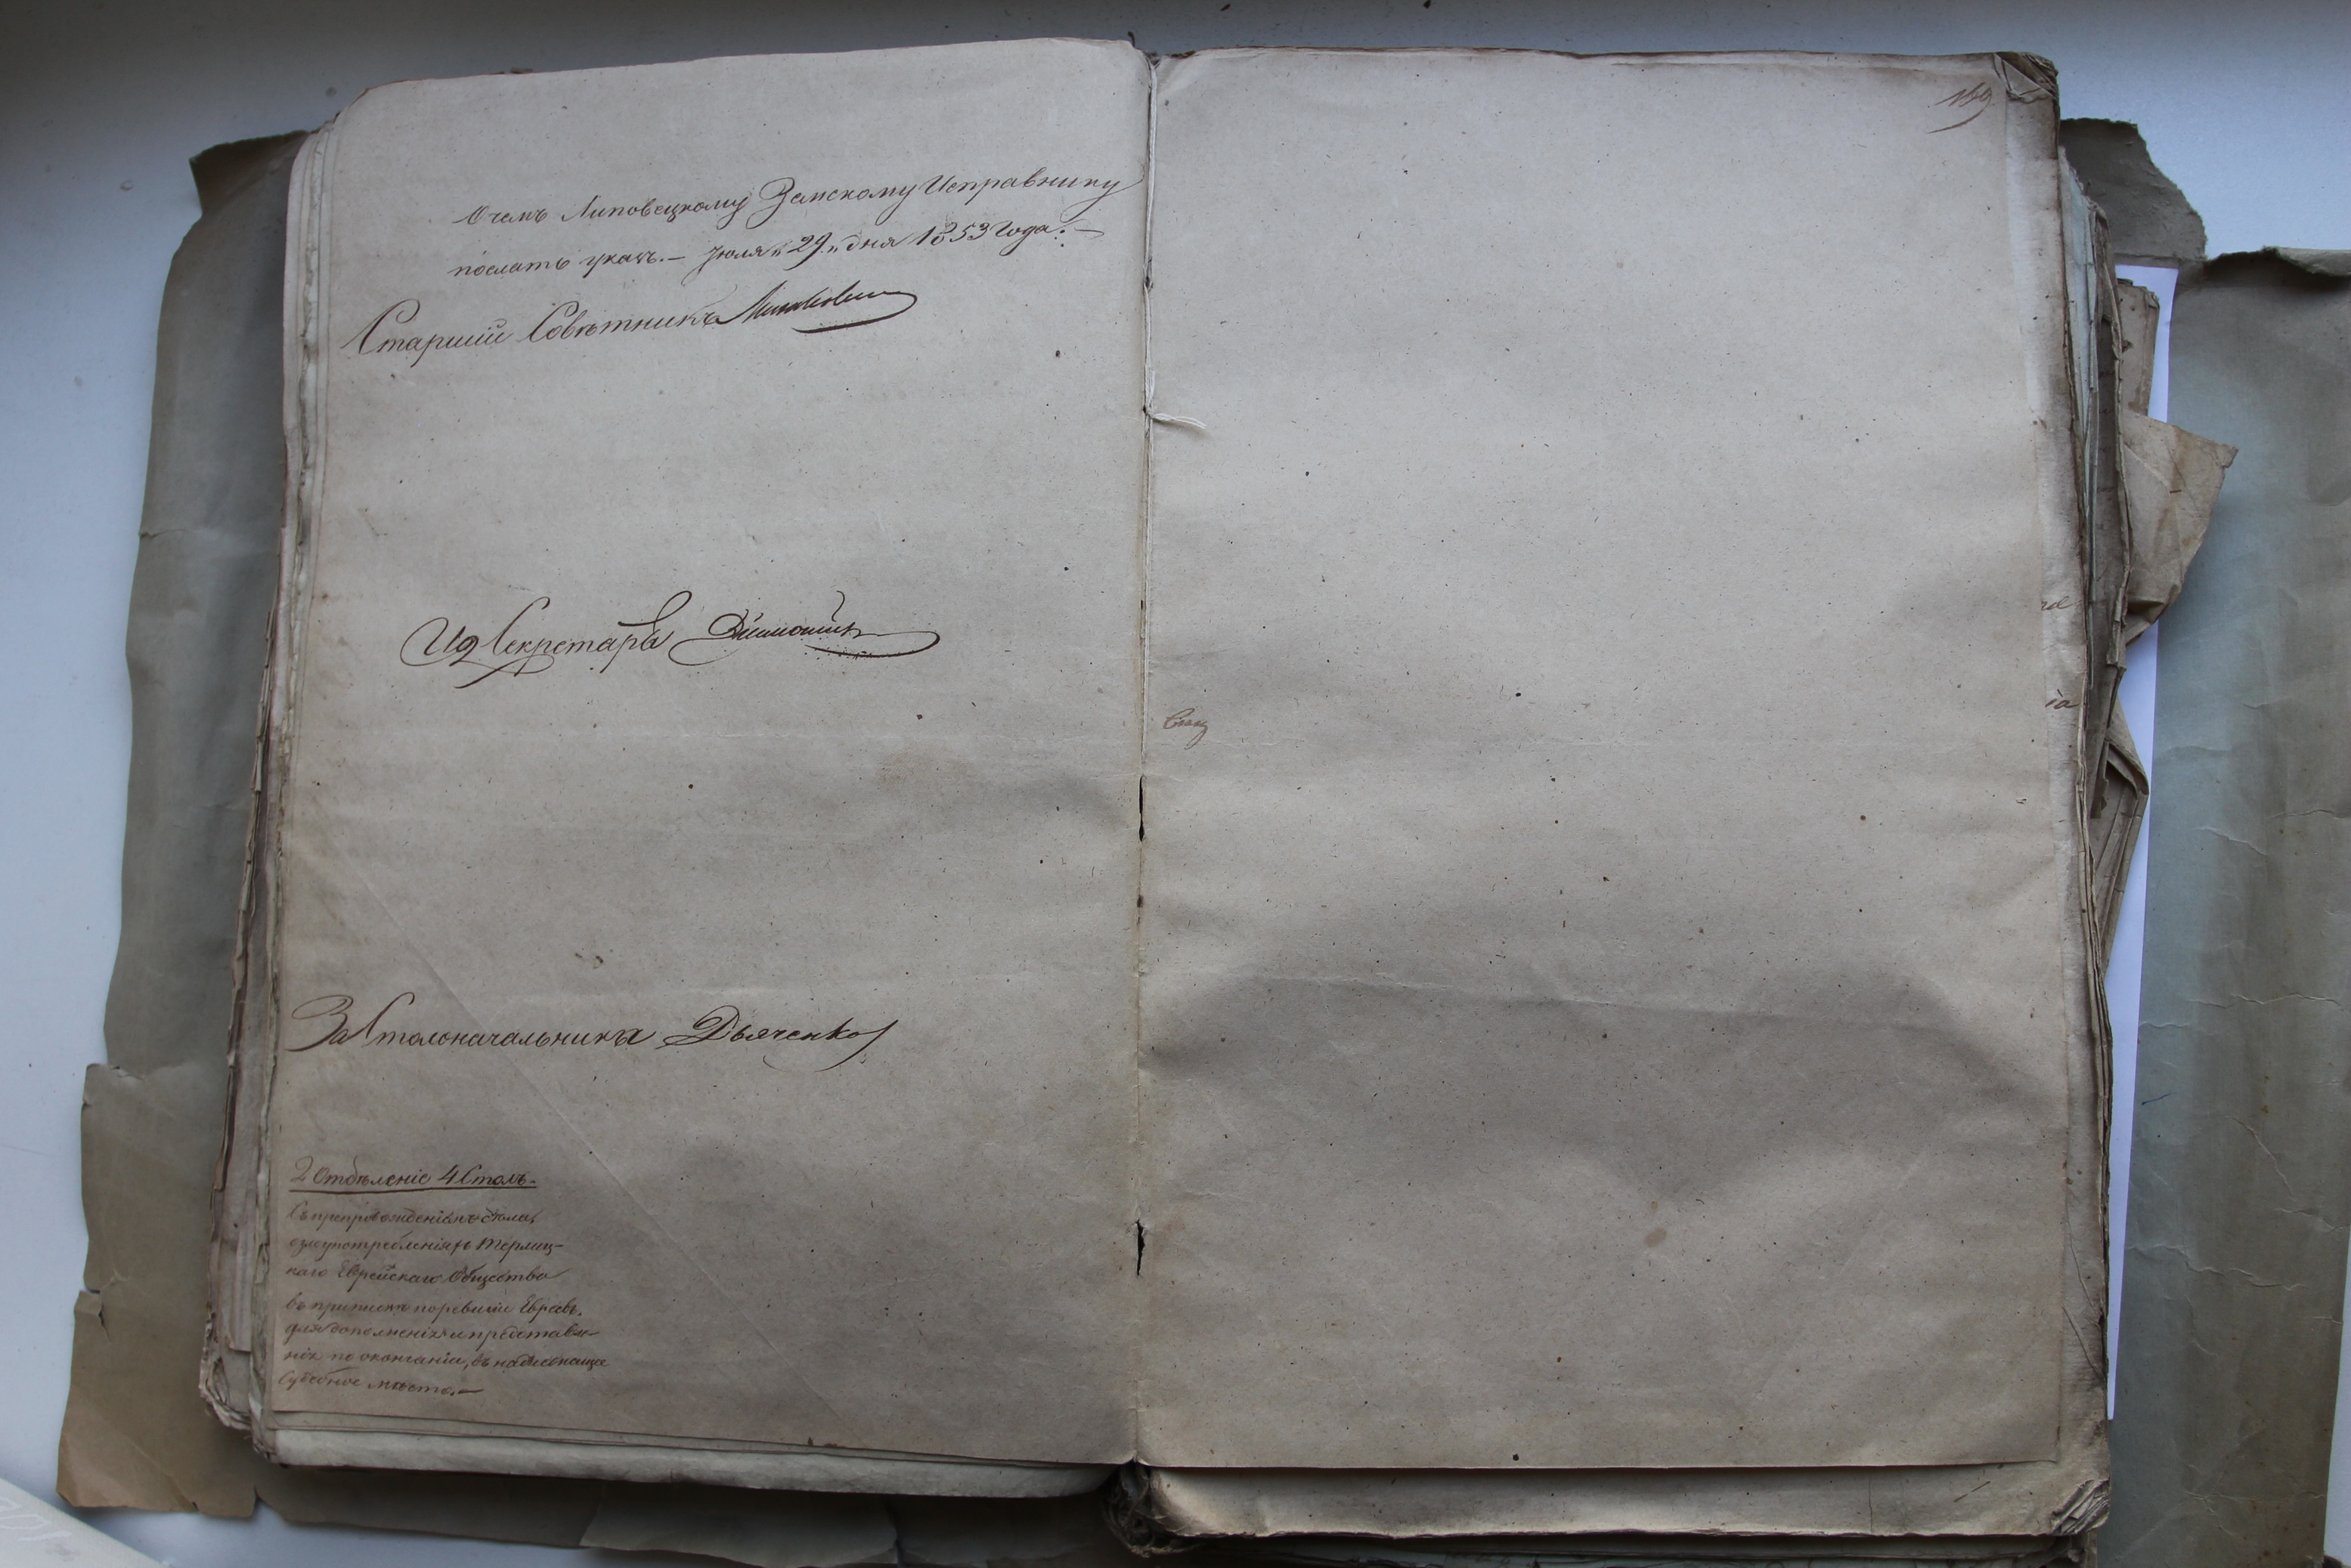 О чемъ Липовецкому Земскому Исправнику
послать указъ. – Іюля „29„ дня 1853 года. –
Старшій Совѣтникъ
Ид Секретаря
За Столоначальника Дьяченко
2 Отдѣленіе 4 Столъ.
Съ препровожденіемъ дѣла,
о злоупотребленіяхъ Терлиц-
каго Еврейскаго Общества
въ припискѣ по ревизіи Евреевъ,
для дополненія и представле-
нія по окончаніи, въ надлежащее
Судебное мѣсто. –
169